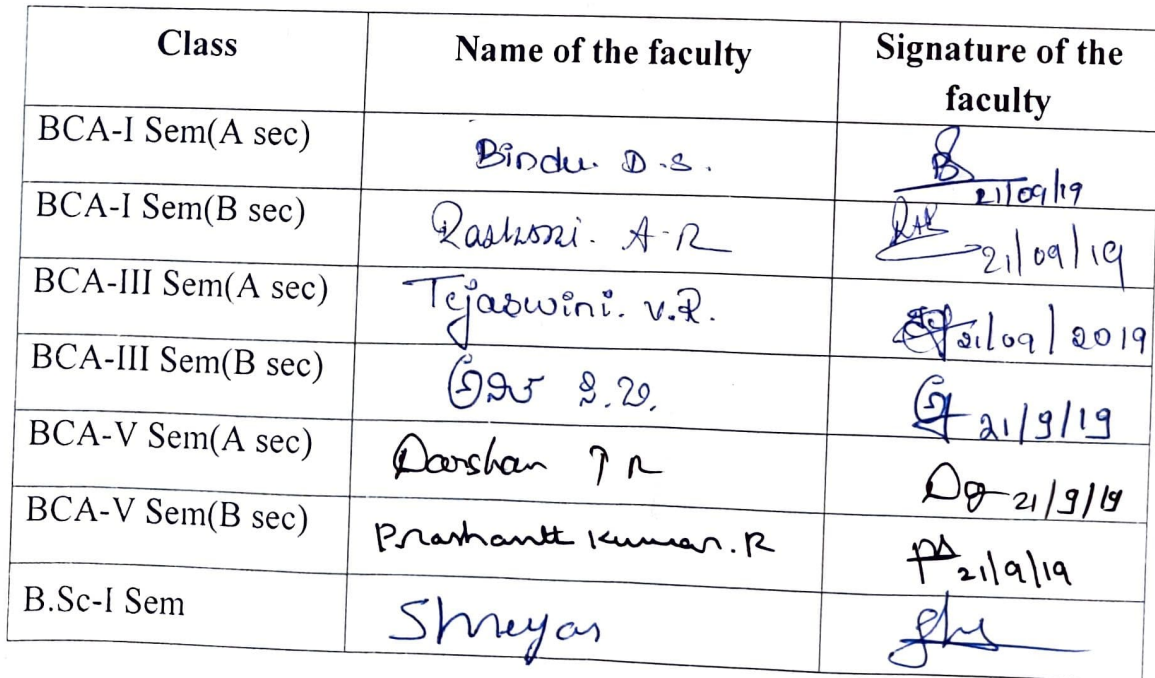 Class Name of the faculty Signature of the faculty
BCA-I Sem(A sec) Bindu. D.S. 21/09/19
BCA-I Sem(B sec) Rashmi. A-R 21/09/19
BCA-III Sem(A sec) Tejaswini. V.R. 21/09/2019
BCA-III Sem(B sec) 21/9/19
BCA-V Sem(A sec) Darshan T R 21/9/19
BCA-V Sem(B sec) Prashantt Kumar. R 21/9/19
B.Sc-I Sem Shreyas